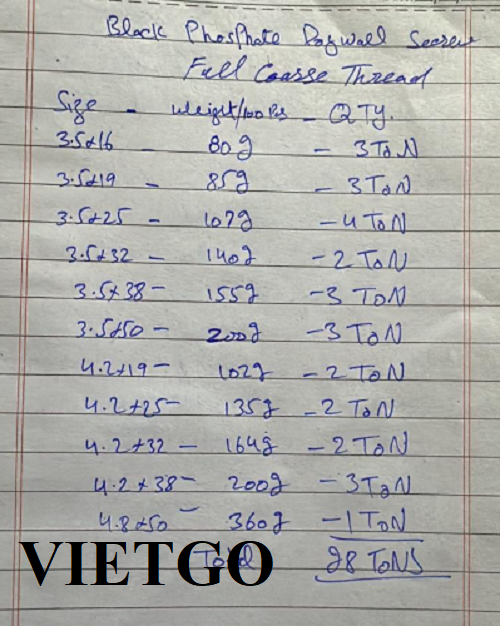 Black Phosphate Drywall Screw
Full Coarse Thread
Size - Weight/100 Pcs - QTY.
3.5x16 - 80g - 3 TON
3.5x19 - 85g - 3 TON
3.5x25 - 107g - 4 TON
3.5x32 - 140g - 2 TON
3.5x38 - 155g - 3 TON
3.5x50 - 200g - 3 TON
4.2x19 - 102g - 2 TON
4.2x25 - 135g - 2 TON
4.2x32 - 164g - 2 TON
4.2x38 - 200g - 3 TON
4.8x50 - 360g - 1 TON
Total 28 TONS
VIETGO